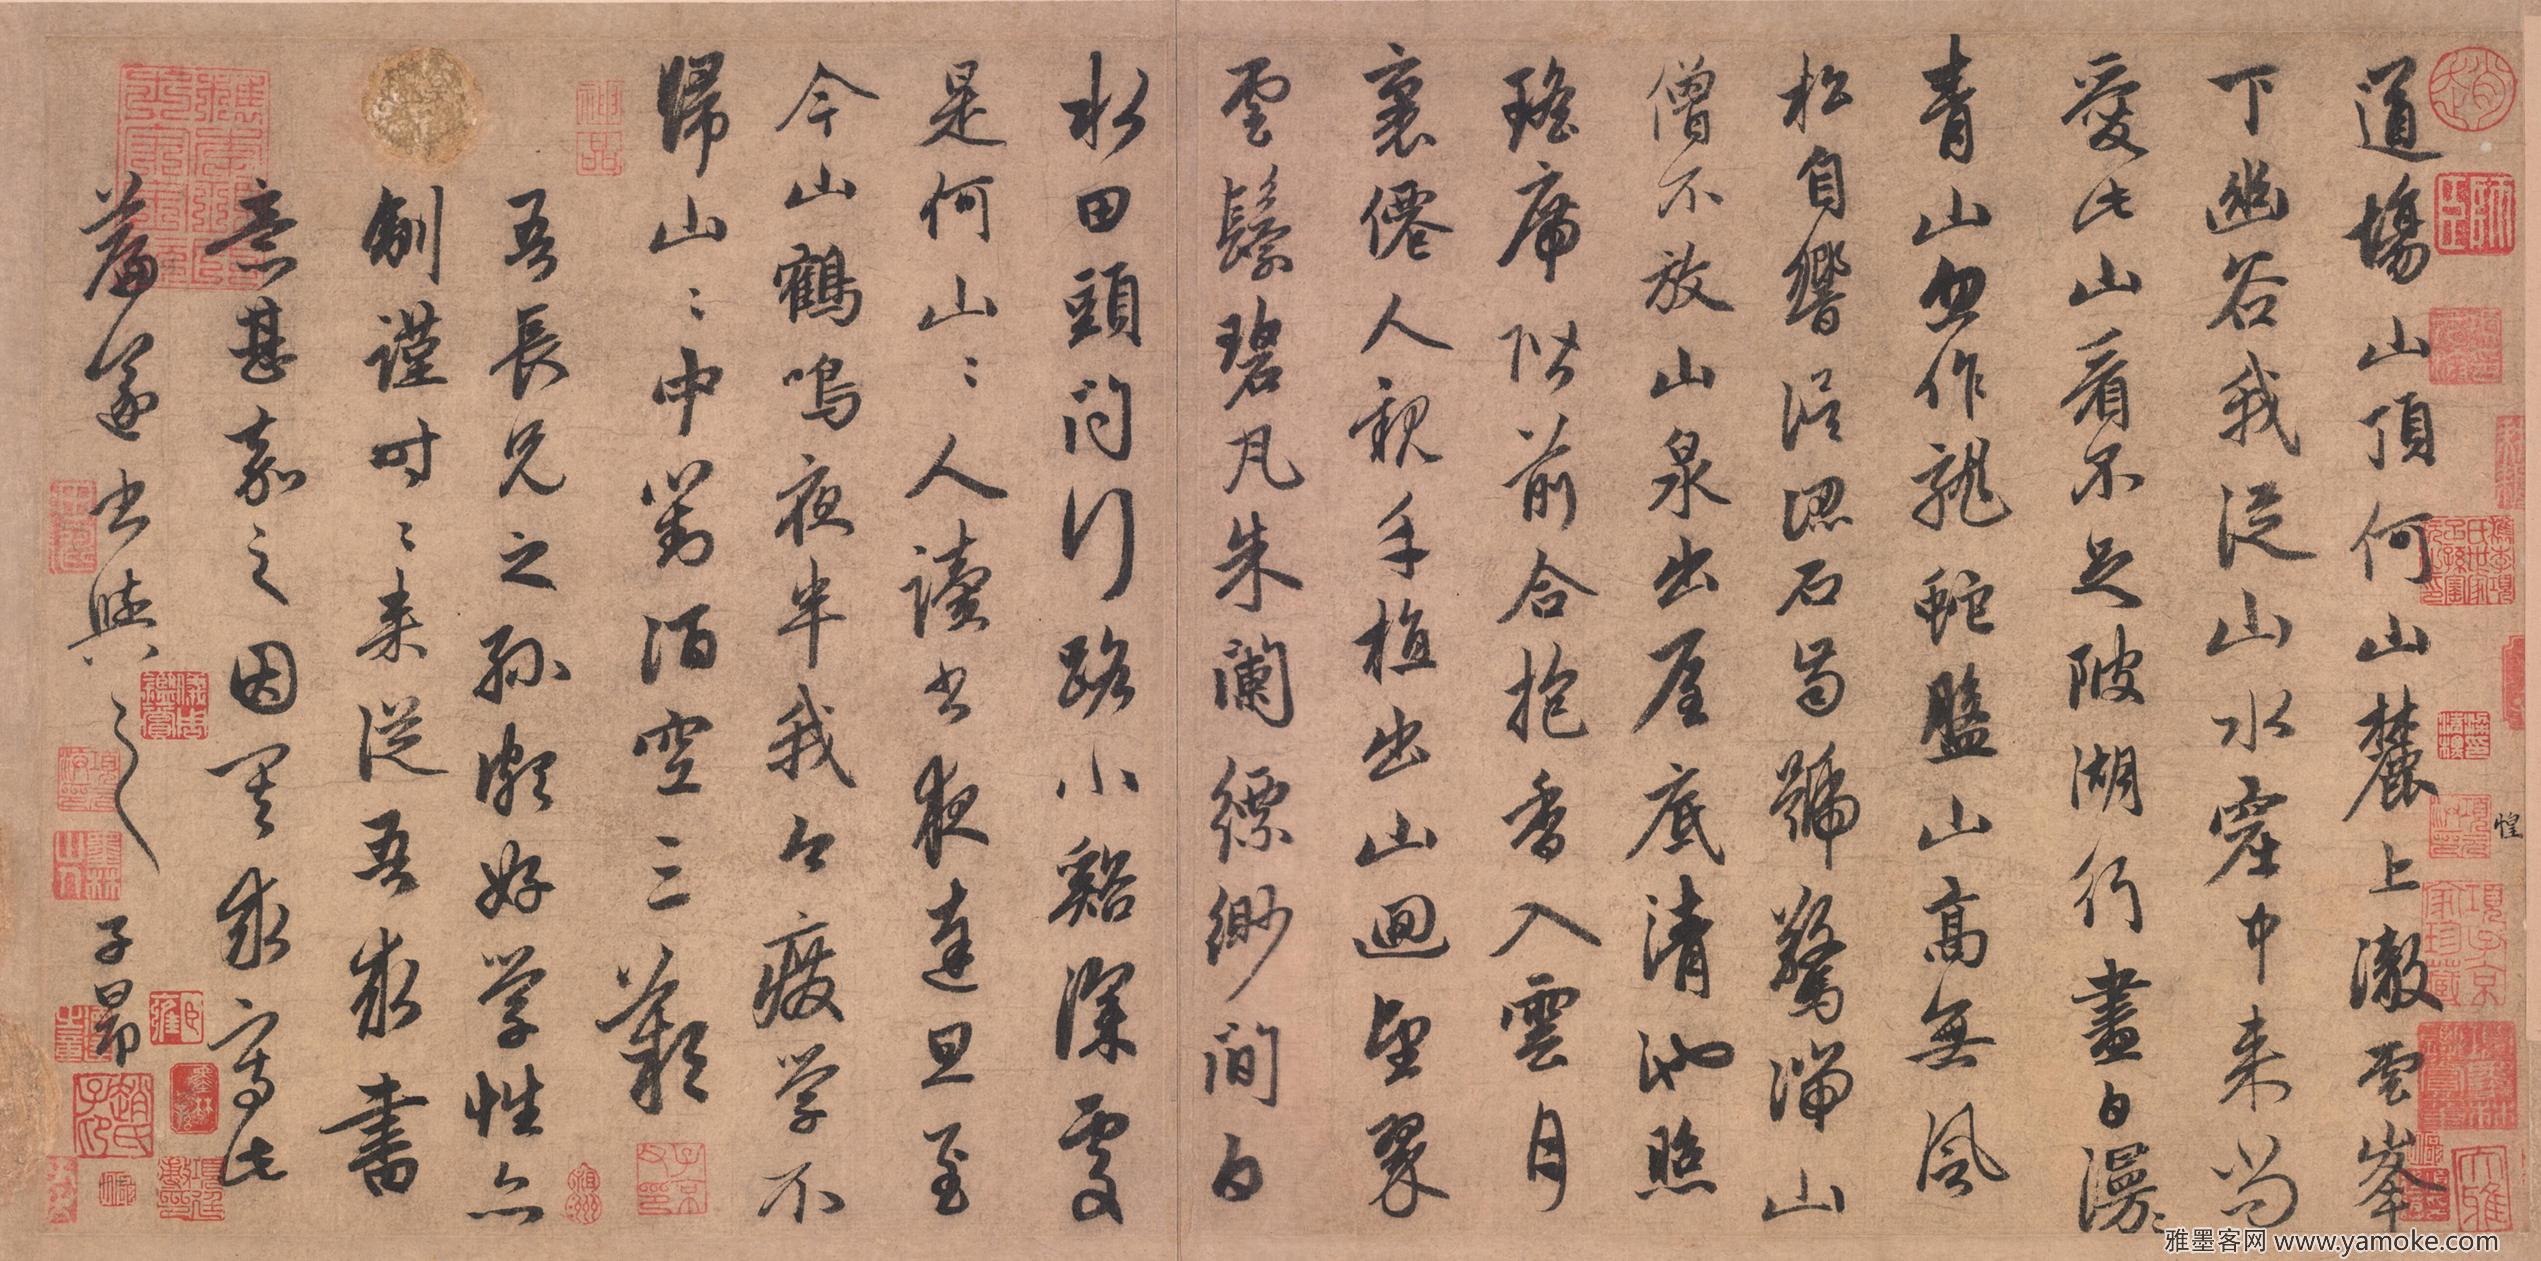 道場山頂何山麓上澈雲峯
下幽谷我從山水窟中来尚
愛此山看不足陂湖行盡白漫〻
青山忽作龍蛇盤山高無風
松自響誤認石齒號驚湍山
僧不放山泉出屋底清池照
瑤席階前合抱香入雲月
裏僊人親手植出山迴望翠
雲鬟碧瓦朱闌縹緲間白
水田頭問行路小谿深處
是何山〻人讀書夜達旦至
今山鶴鳴夜半我今廢學不
歸山〻中對酒空三歎
吾長兄之孫頗好學性亦
劊謹時〻来從吾求書
意甚嘉之因其求寫此
篇遂書與之
子昂
神品
惶
雅墨客网 www.yamoke.com